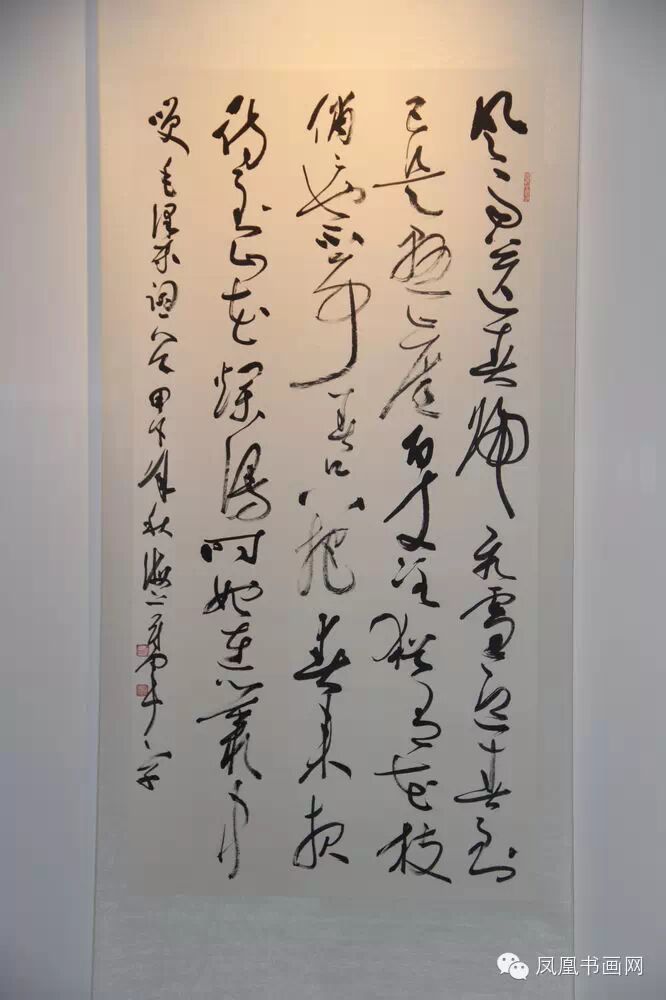 风雨送春归飞雪迎春到
已是悬崖百丈冰犹有花枝
俏俏也不争春只把春来报
待到山花烂漫时她在丛中
笑 毛泽东词 甲午年秋海上
凤凰书画网